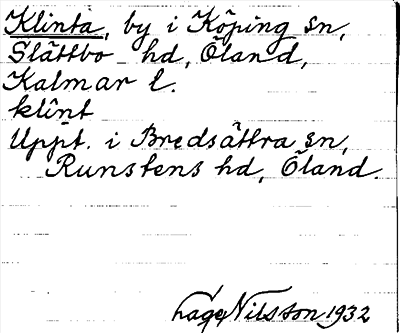 Klinta, by i Köping sn,
Slättbo hd, Öland,
Kalmar l.
klint
Uppt. i Bredsättra sn,
Runstens hd, Öland.
Lage Nilsson 1932